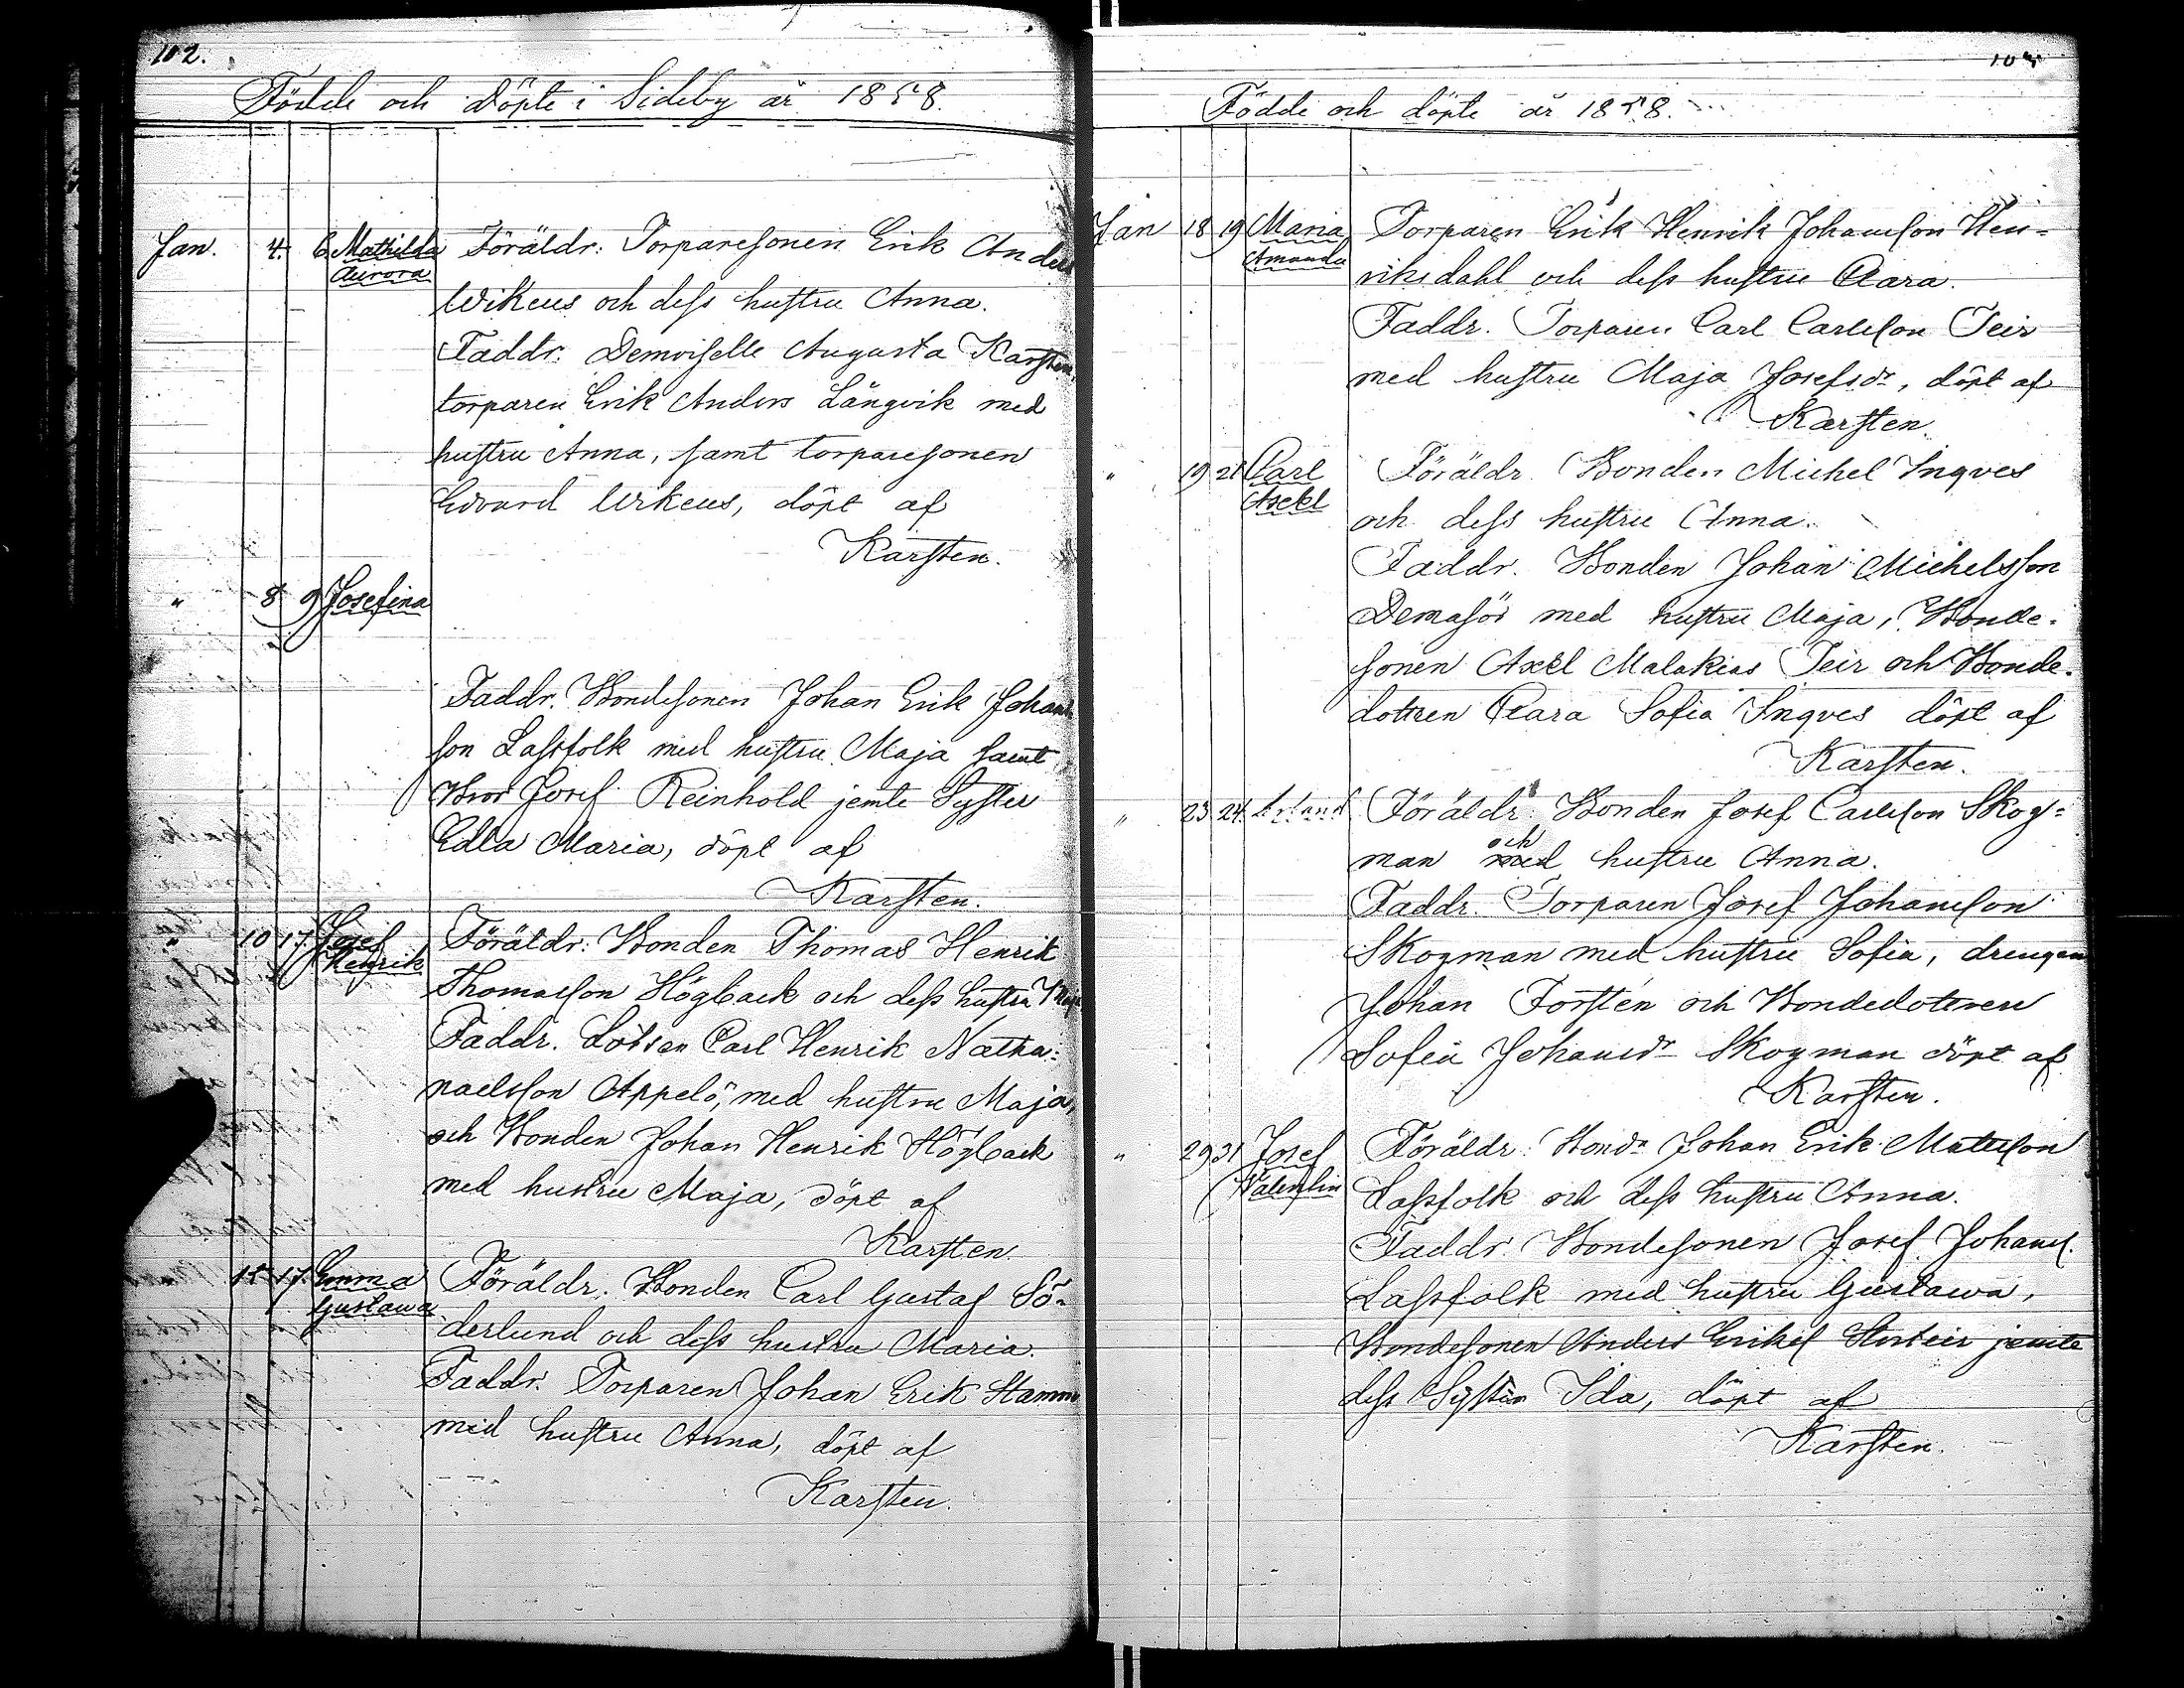 102.
Födde och döpte i Sideby år 1858.
Jan. 4. 6. Mathilda Aurora Föräldr: Torparesonen Erik Anders
Wikeus och dess hustru Anna.
Faddr: Demoiselle Augusta Karsten,
torparen Erik Anders Långvik med
hustru Anna, samt torparesonen
Edvard Wikeus, döpt af
Karsten.
" 8 9 Josefina
Faddr. Bondesonen Johan Erik Johans
son Lassfolk med hustru Maja samt
Bror Josef Reinhold jemte Syster
Edla Maria, döpt af
Karsten.
" 10 17 Josef Henrik Föräldr: Bonden Thomas Henrik
Thomasson Högback och dess hustru Maja
Faddr. Lotsen Carl Henrik Natha-
naelsson Appelö, med hustru Maja,
och Bonden Johan Henrik Högback
med hustru Maja, döpt af
Karsten
15 17. Emma Gustawa Föräldr. Bonden Carl Gustaf Sö-
derlund och dess hustru Maria.
Faddr. Torparen Johan Erik Stamm
med hustru Anna, döpt af
Karsten.
Födde och döpte år 1858.
Jan 18 19 Maria Amanda Torparen Erik Henrik Johansson Hen-
riksdahl och dess hustru Clara.
Faddr. Torparen Carl Carlsson Teir
med hustru Maja Josefsdr, döpt af
Karsten.
" 19 21 Carl Axel Föräldr. Bonden Michel Ingves
och dess hustru Anna.
Faddr. Bonden Johan Michelsson
Demasör med hustru Maja, Bonde-
sonen Axel Malakias Teir och Bonde-
dottren Clara Sofia Ingves döpt af
Karsten.
" 23 24. Föräldr. Bonden Josef Carlsson Skog-
och
man med hustru Anna.
Faddr. Torparen Josef Johansson
Skogman med hustru Sofia, drengen
Johan Forstén och Bondedottren
Sofia Johansdr Skogman döpt af
Karsten.
" 29 31 Josef Valentin Föräldr: Bondn Johan Erik Matsson
Lassfolk och dess hustru Anna.
Faddr. Bondesonen Josef Johans.
Lassfolk med hustru Gustawa,
Bondesonen Anders Eriks Storteir jemte
dess Syster Ida, döpt af
Karsten.